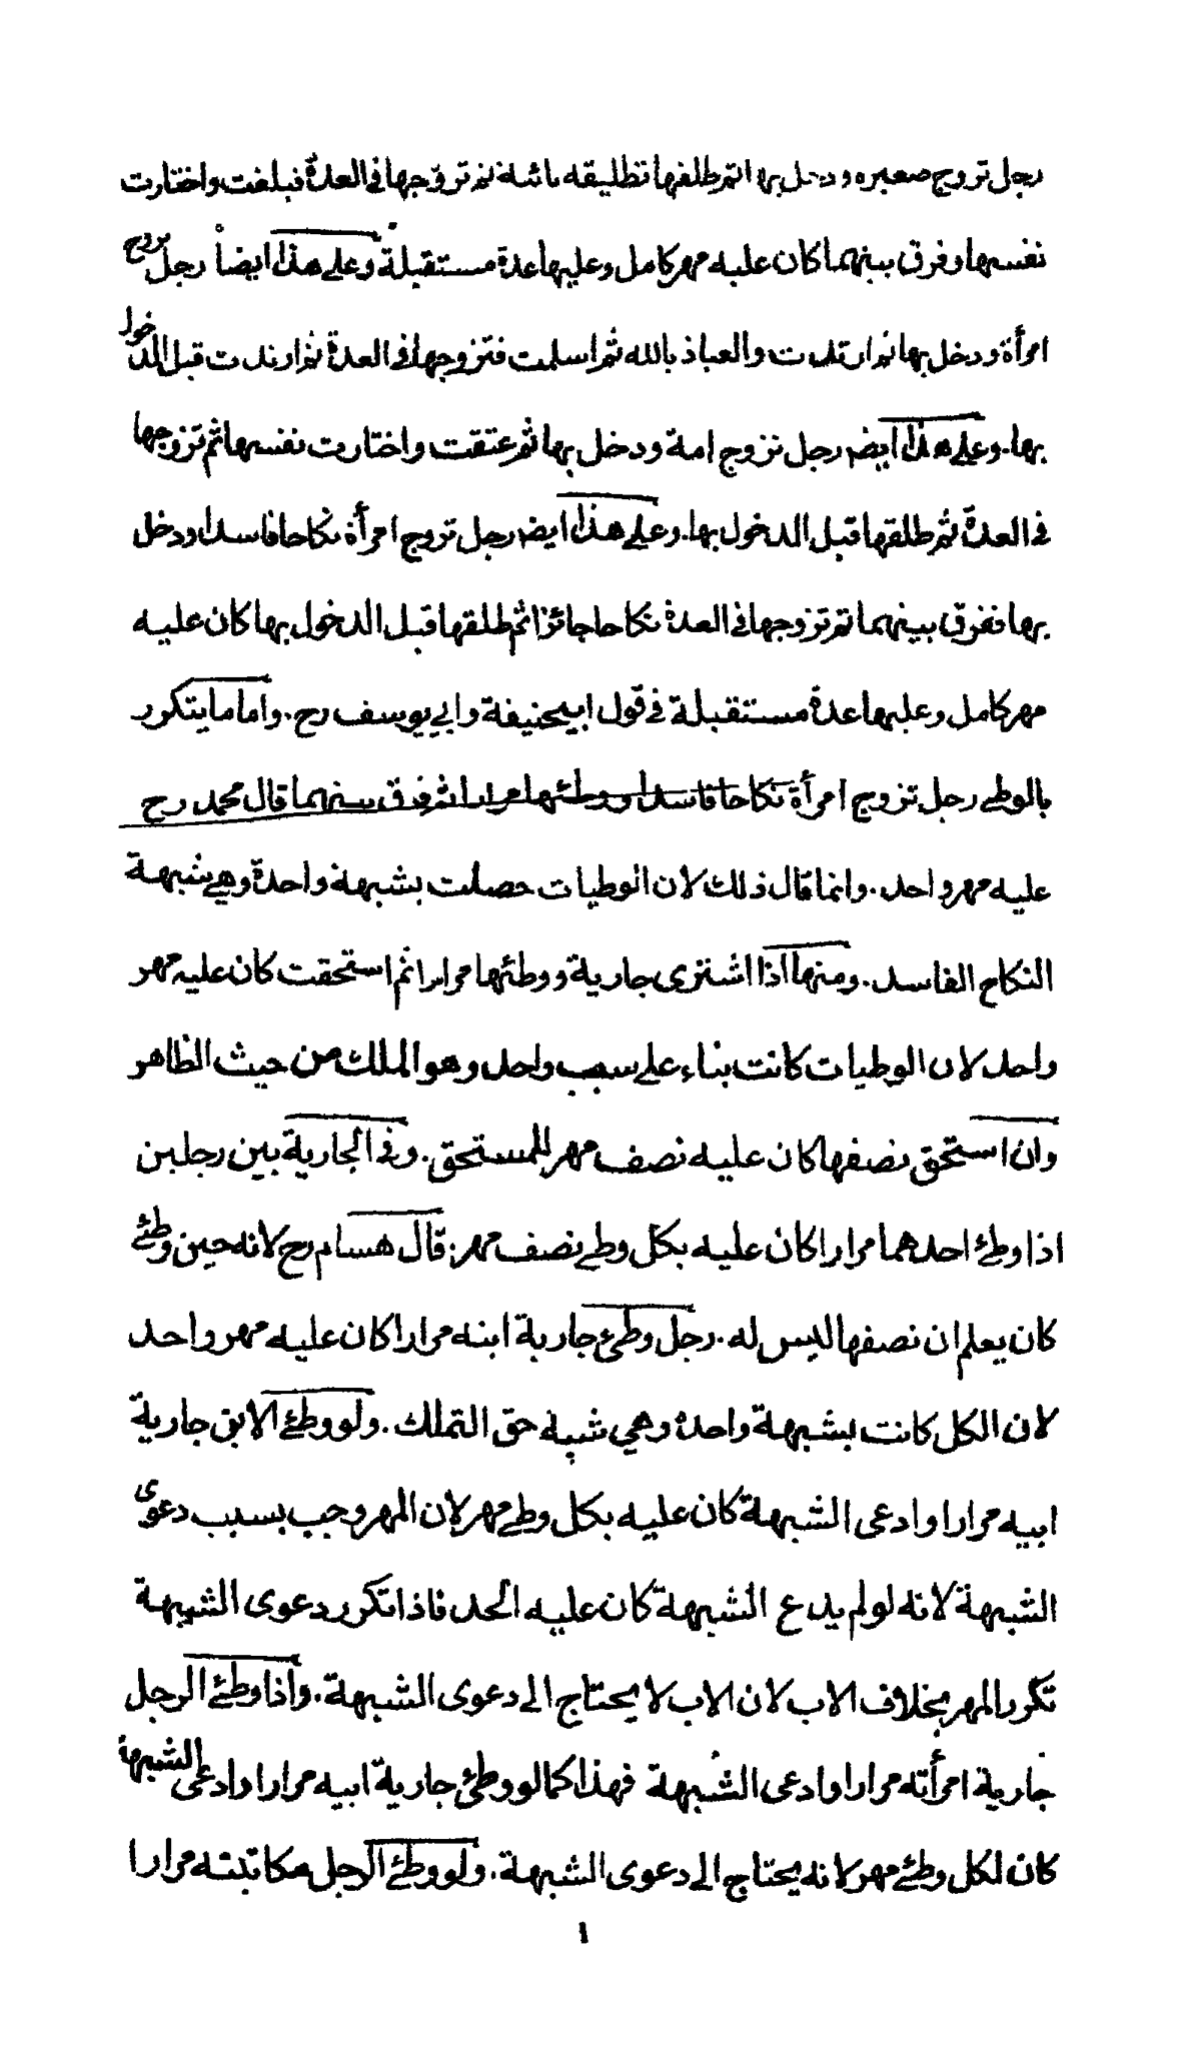 رجل تزوج صغيره ودخل بها ثم طلقها تطليقه بائنة ثم تزوجها في العدة فبلغت واختارت
نفسها وفرق بينهما كان عليه مهر كامل وعليها عدة مستقبلة وعلى هذا ايضاً رجل تزوج
امرأة ودخل بها ثم ارتدت والعياذ بالله ثم اسلمت فتزوجها في العدة ثم ارتدت قبل الدخول
بها. وعلى هذا ايضا رجل تزوج امة ودخل بها ثم عتقت واختارت نفسها ثم تزوجها
في العدة ثم طلقها قبل الدخول بها. وعلى هذا ايضا رجل تزوج امرأة نكاحا فاسدا ودخل
بها ففرق بينهما ثم تزوجها في العدة نكاحا جائزا ثم طلقها قبل الدخول بها كان عليه
مهر كامل وعليها عدة مستقبلة في قول ابيحنيفة وابي يوسف رح. واما ما يتكرر
بالوطي رجل تزوج امرأة نكاحا فاسدا ووطئها مرارا ثم فرق بينهما قال محمد رح
عليه مهر واحد. وانما قال ذلك لان الوطيات حصلت بشبهة واحدة وهي شبهة
النكاح الفاسد. ومنها اذا اشترى جارية ووطئها مرارا ثم استحقت كان عليه مهر
واحد لان الوطيات كانت بناء على سبب واحد وهو الملك من حيث الظاهر
وان استحق نصفها كان عليه نصف مهر للمستحق. وفي الجارية بين رجلين
اذا وطئ احدهما مرارا كان عليه بكل وطي نصف مهر. قال هسام رح لانه حين وطئ
كان يعلم ان نصفها ليس له. رجل وطئ جارية ابنه مرارا كان عليه مهر واحد
لان الكل كانت بشبهة واحدة وهي شبهة حق التملك. ولو وطئ الابن جارية
ابيه مرارا وادعى الشبهة كان عليه بكل وطي مهر لان المهر وجب بسبب دعوى
الشبهة لانه لو لم يدع الشبهة كان عليه الحد فاذا تكرر دعوى الشبهة
تكرر المهر بخلاف الاب لان الاب لا يحتاج الى دعوى الشبهة. واذا وطئ الرجل
جارية امرأته مرارا وادعى الشبهة فهذا كما لو وطئ جارية ابيه مرارا وادعى الشبهة
كان لكل وطئ مهر لانه يحتاج الى دعوى الشبهة. ولو وطئ الرجل مكاتبته مرارا
١